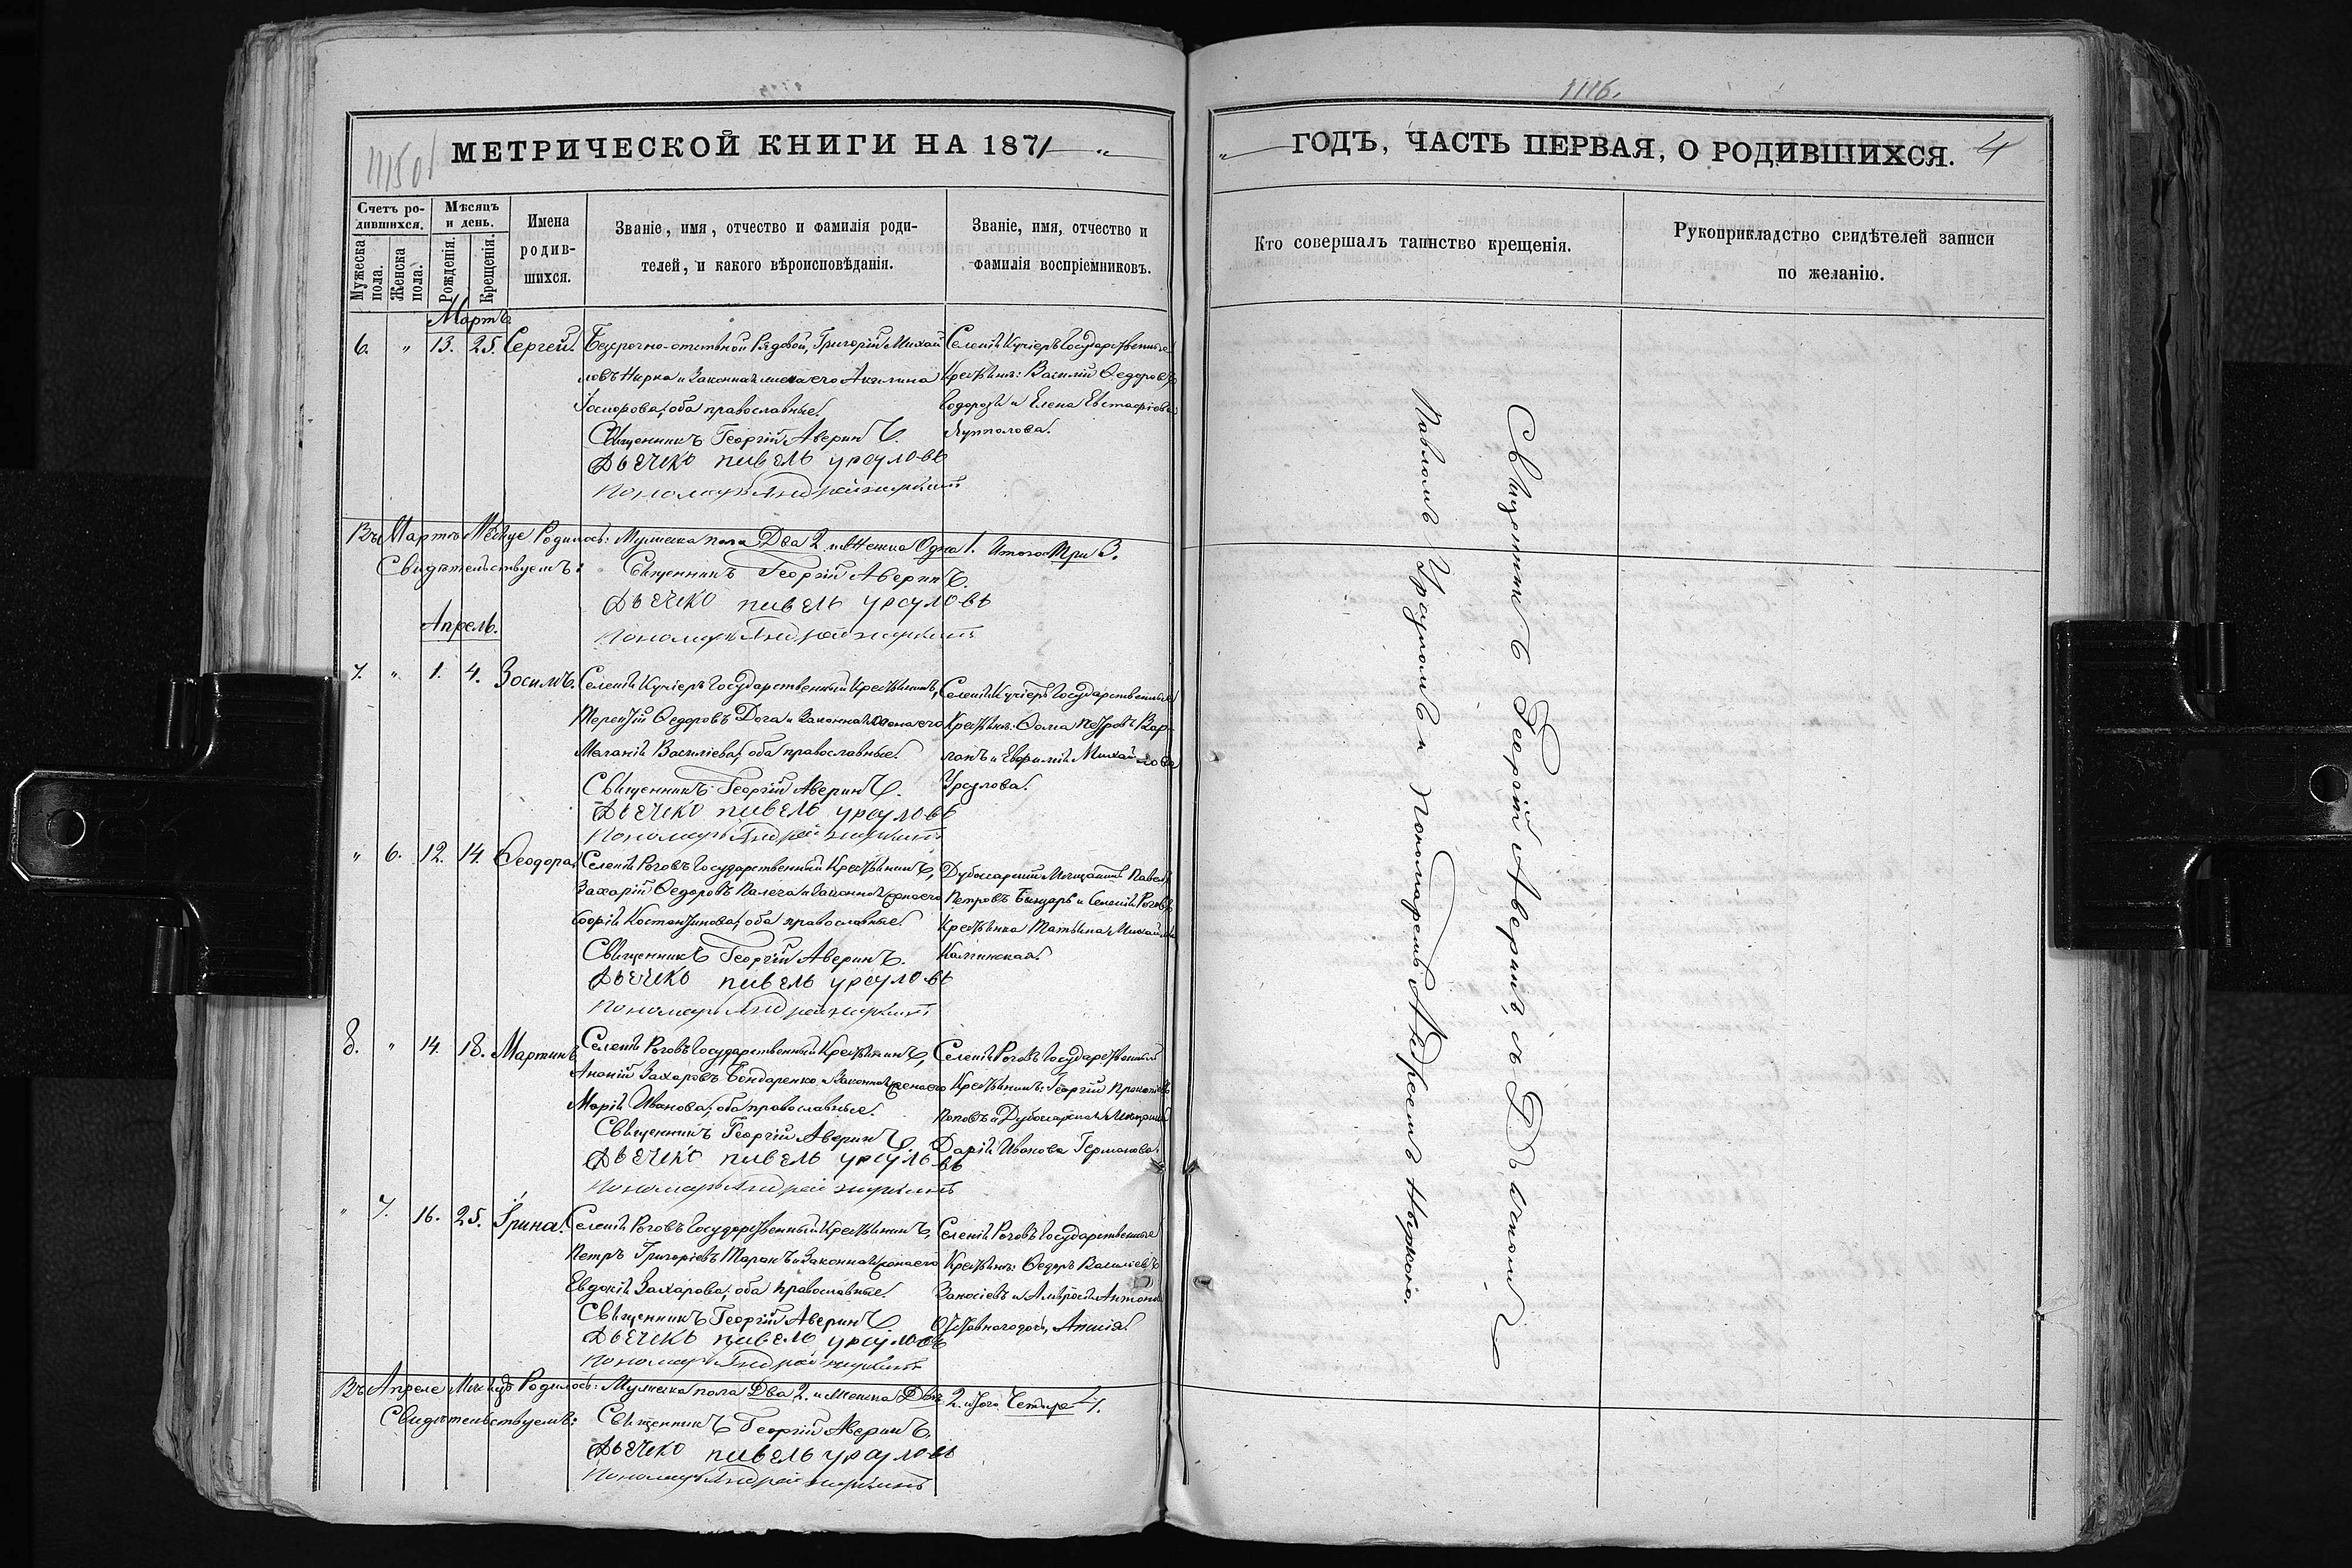 1115 об
МЕТРИЧЕСКОЙ КНИГИ НА 1871 "
Счетъ ро-
дившихся.
Мужеска пола.
Женска пола.
Мѣсяцъ
и день.
Рожденія.
Крещенія.
Имена
родив-
шихся.
Званіе, имя, отчество и фамилія роди-
телей, и какого вѣроисповѣданія.
Званіе, имя, отчество и
фамилія воспріемниковъ.
Мартъ.
6. " 13. 25. Сергей.
Безсрочно-отпускной Рядовой, Григорій Михай
ловъ и Законная жена его Акилина
оба православные.
Священникъ Георгій Аверинъ.
Дьячекъ Павелъ Урсуловъ
Пономарь Андрей
Селенія Кучіеръ Государственные
Крестьяне: Василій Ѳедоровъ
и Елена Евстафіева
Въ Мартѣ Мѣсяце Родилось: Мужеска пола Два 2. и Женска Одна 1. Итого Три 3.
Свидѣтельствуемъ:
Священникъ Георгій Аверинъ.
Дьячекъ Павелъ Урсуловъ
Пономарь Андрей
Апрель.
7. " 1. 4. Зосимъ.
Селенія Кучіеръ Государственный Крестьянинъ,
Терентій Ѳедоровъ Дога и Законная жена его
Меланія Василіева, оба православные.
Священникъ Георгій Аверинъ.
Дьячекъ Павелъ Урсуловъ
Пономарь Андрей
Селенія Кучіеръ Государственные
Крестьяне: Ѳома Петровъ Кар-
ланъ и Евфимія Михайлова
Урсулова.
" 6. 12. 14. Ѳеодора.
Селенія Роговъ Государственный Крестьянинъ,
Захарій Ѳедоровъ Палега и Законная жена его
Софія Костантинова, оба православные.
Священникъ Георгій Аверинъ.
Дьячекъ Павелъ Урсуловъ
Пономарь Андрей
Дубосарскій Мѣщанинъ Павелъ
Петровъ и Селенія Роговъ
Крестьянка Татьяна Михайлова
Калинская.
8. " 14. 18. Мартинъ
Селенія Роговъ Государственный Крестьянинъ,
Ананій Захаровъ Бондаренко и Законная жена его
Марія Иванова, оба православные.
Священникъ Георгій Аверинъ.
Дьячекъ Павелъ Урсуловъ
Пономарь Андрей
Селенія Роговъ Государственный
Крестьянинъ: Георгій Прокопіевъ
Поповъ и Дубосарская
Дарія Иванова Германова.
" 7. 16. 25. Ірина.
Селенія Роговъ Государственный Крестьянинъ,
Петръ Григоріевъ Таранъ и Законная жена его
Евдокія Захарова, оба православные.
Священникъ Георгій Аверинъ
Дьячекъ Павелъ Урсуловъ
Пономарь Андрей
Селенія Роговъ Государственные
Крестьяне: Ѳедоръ Василіевъ
Въ Апреле Мѣсяце Родилось: Мужеска пола Два 2. и Женска Двѣ 2. итого Четыре 4.
Свидѣтельствуемъ:
Священникъ Георгій Аверинъ.
Дьячекъ Павелъ Урсуловъ
Пономарь Андрей
1116.
" ГОДЪ, ЧАСТЬ ПЕРВАЯ, О РОДИВШИХСЯ. 4
Кто совершалъ таинство крещенія.
Рукоприкладство свидѣтелей записи
по желанію.
Священникъ Георгій Аверинъ, съ Дьячкомъ
Павломъ Урсуломъ и Пономаремъ Андреемъ